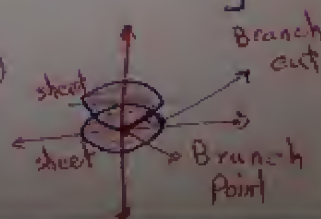 Branch
cut
sheet
sheet
Branch
Point